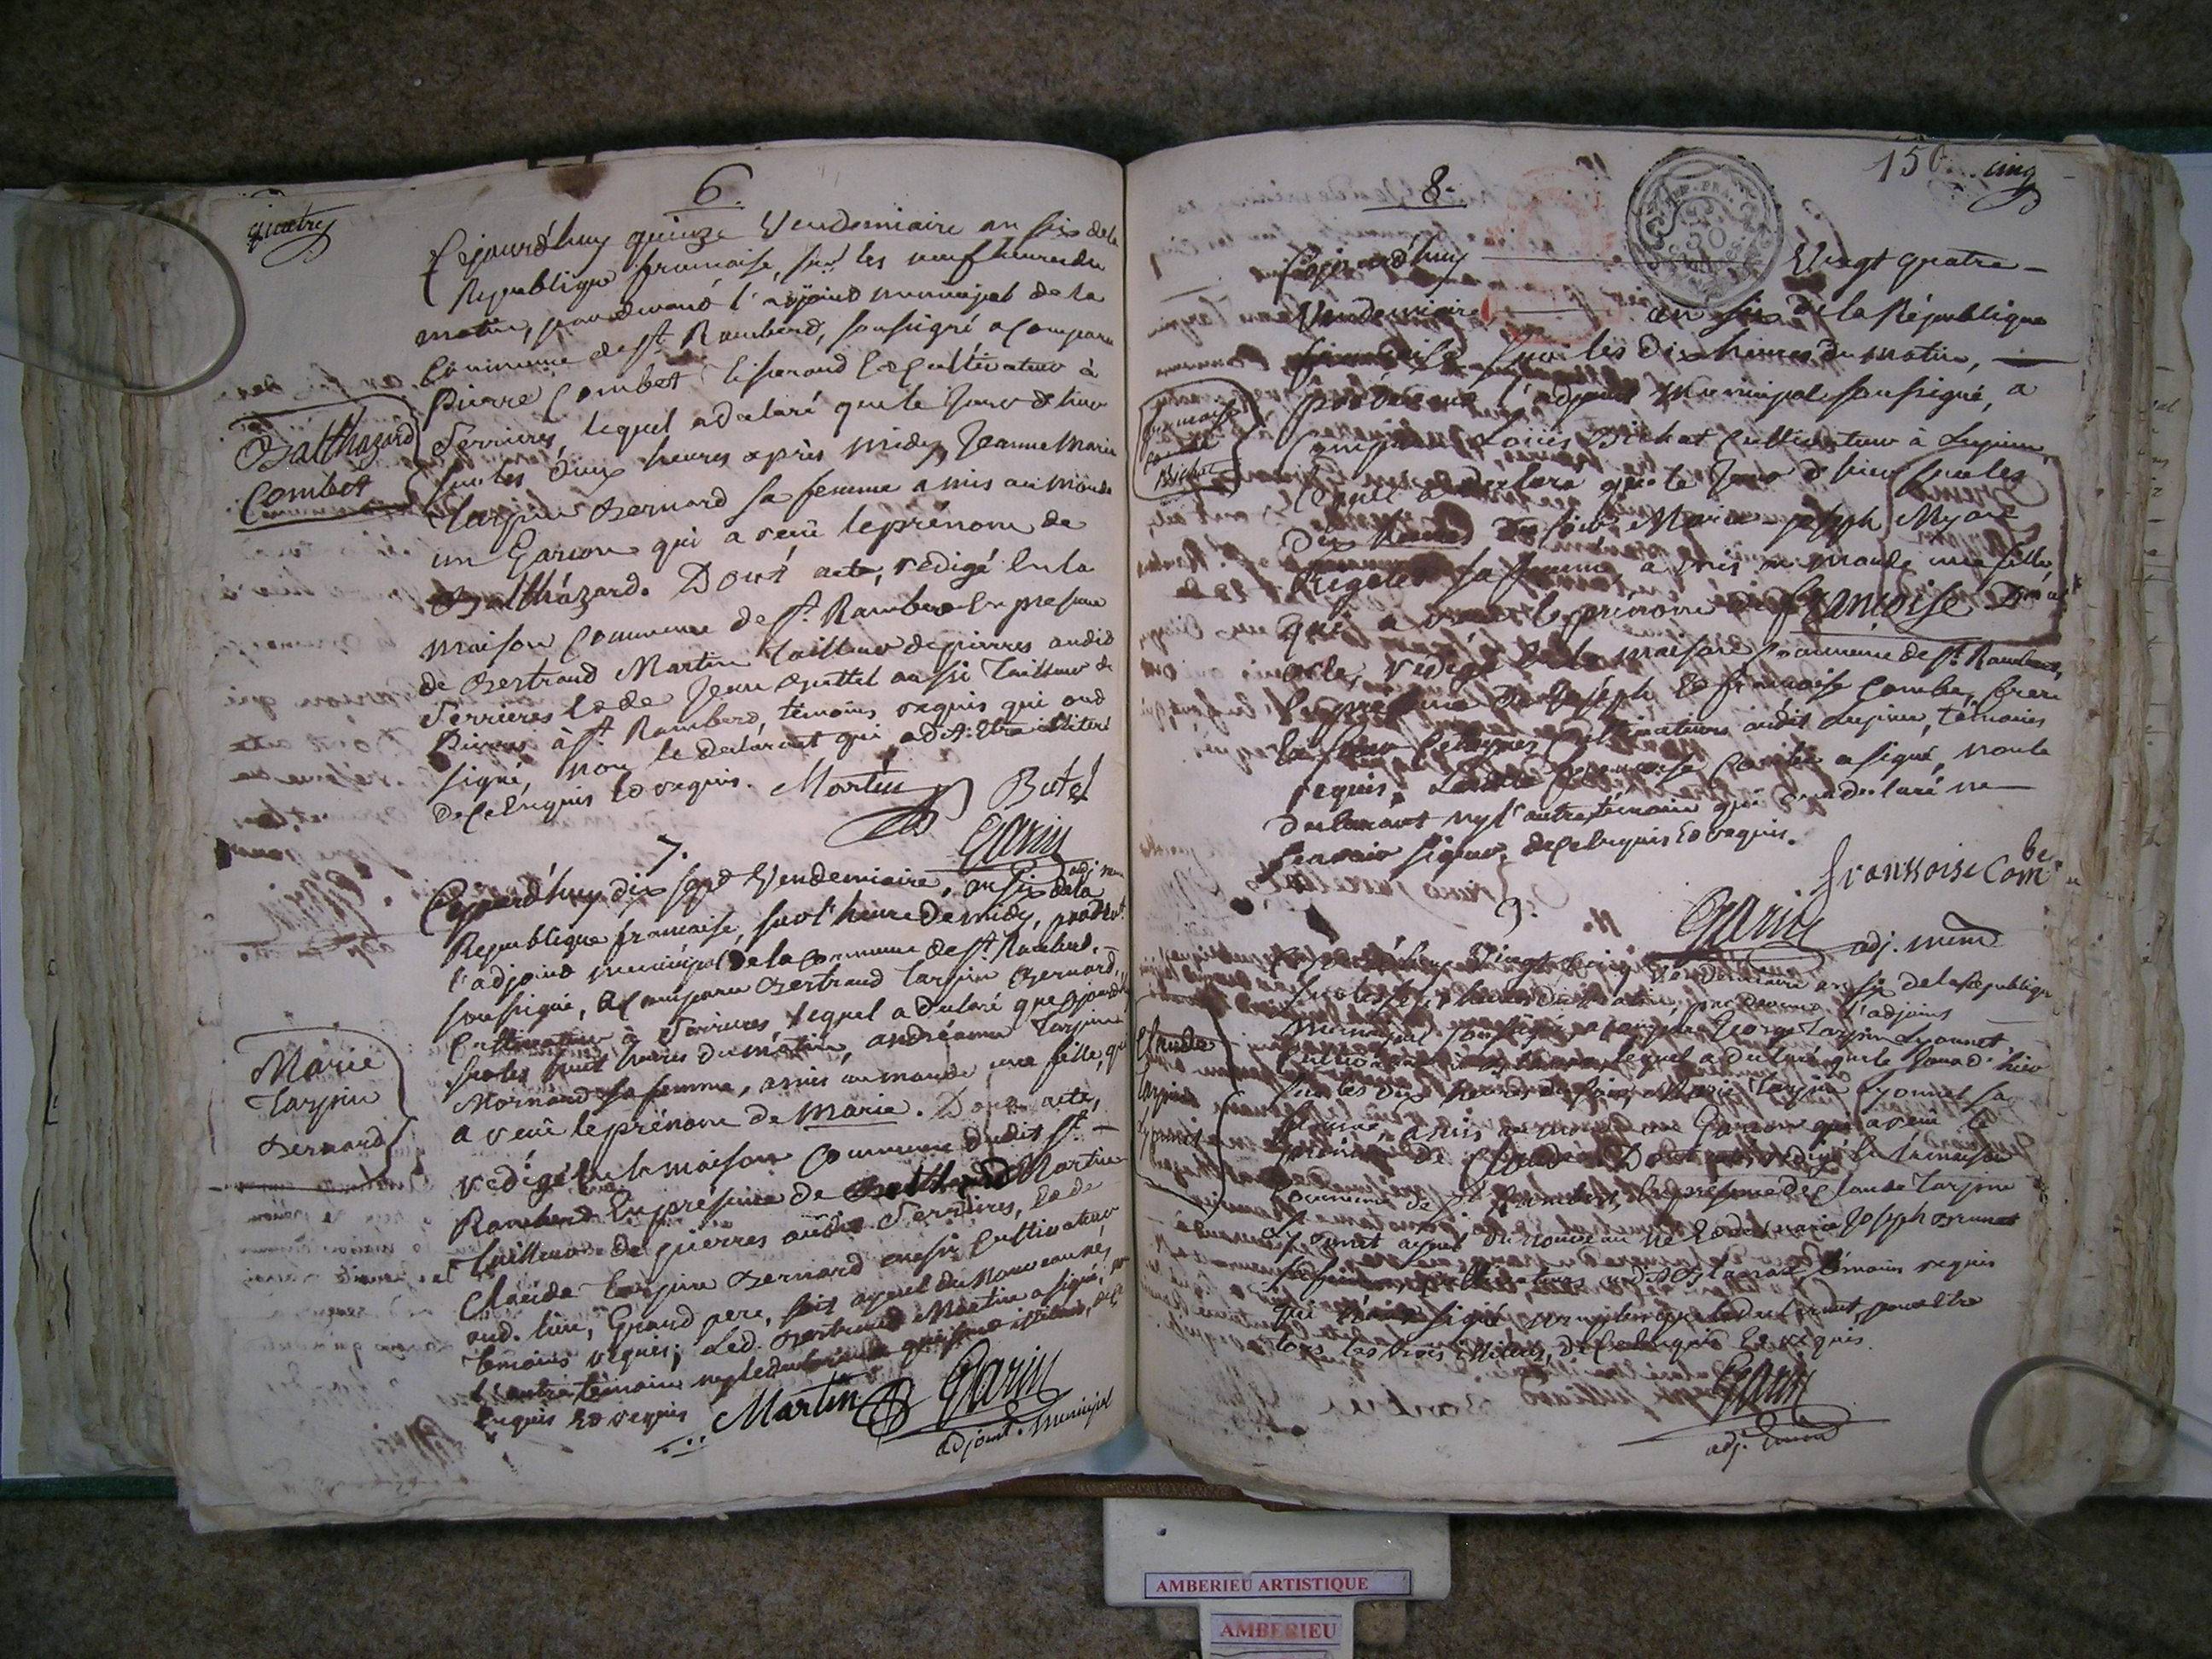 quatre
6.
Cejourd'huy quinze Vendemiaire an six de la
Republique francaise, sur les neuf heures du
matin, pardevand l'adjoind municipal de la
Commune de St. Rambert, soussigné a Comparu
Pierre Combet tisserand & Cultivateur à
Serrieres, lequel a declaré que le Jour d'hier
Balthazard
Combet
sur les deux heures après midy, Jeanne Marie
Tarpin Bernard sa femme a mis au monde
un Garcon qui a reçû le prénom de
Balthazard. Dont acte, redigé en la
maison Commune de St. Rambert En presence
de Bertrand Martin tailleur de pierres audit
Serrieres & de Jean Buttel aussi Tailleur de
Pierres à St. Rambert, témoins requis qui ont
signé, non le declarant qui a dit Etre illiteré
de Ce Enquis & requis. Martin Butel
Garin
adj. mun
7.
Cejourd'huy dix sept Vendemiaire, an six de la
Republique francaise, sur l'heure de midy, pardevt.
l'adjoind municipal de la Commune de St. Rambert
soussigné, a Comparu Bertrand Tarpin Bernard
Cultivateur à Serrieres, lequel a declaré que Cejourd'huy
sur les huit heures du matin, andréanne Tarpin
Marie
Tarpin
Bernard
Mornand sa femme, a mis au monde une fille, qui
a reçû le prénom de Marie. Dont acte,
redigé En la maison Commune dudit St.
Rambert En présence de Martin
Tailleur de pierres audit Serrieres, & de
Claude Tarpin Bernard aussi Cultivateur
aud. lieu, Grand pere, soit ayeul du Nouveau né,
temoins requis; Led. Bertrand Martin a signé, non
l'autre témoin ny le declarant qui sont illiteré, de Ce
Enquis & requis
Martin Garin
adjoint. municipal
150 cinq
8.
REP. FRA.
50
Cejourd'huy Vingt quatre
Vendemiaire an six de la République
francaise sur les dix heures du matin,
pardevant l'adjoint Municipal soussigné, a
francoise
Bichat
Comparu Loüis Bichat Cultivateur à Lupieu,
lequel a declaré que le Jour d'hier sur les
dix heures du soir Marie Joseph Myard
Rigolet sa femme, a mis au monde une fille
qui a reçû le prénom de francoise Dont
acte, redigé En la maison Commune de St. Rambert,
En presence de Joseph & francoise Combe, frere
& sœur Cultivateurs audit Lupieu, témoins
requis. Ladite francoise Combe a signé, non le
declarant ny l'autre témoin qui ont declaré ne
scavoir signer, de Ce Enquis & requis.
franssoise Combe
Garin
adj. mun
9.
Cejourd'huy Vingt Cinq Vendemiaire an six de la République
sur les sept heures du matin, pardevant l'adjoint
Municipal soussigné a Comparu George Tarpin Lyonnet
Claude
Tarpin
Lyonnet
Cultivateur lequel a declaré que le Jour d'hier
sur les dix heures du soir, Marie Tarpin Lyonnet sa
femme, a mis au monde un Garcon qui a reçû le
prénom de Claude. Dont acte, redigé En la maison
Commune de St. Rambert, En présence de Claude Tarpin
Lyonnet ayeul du nouveau né & de Marie Joseph Brunet
témoins requis
qui n'ont signé, non plus que le declarant, pour Etre
tous les trois illiterés, de Ce Enquis & requis.
Garin
adj. mun
AMBERIEU ARTISTIQUE
AMBERIEU